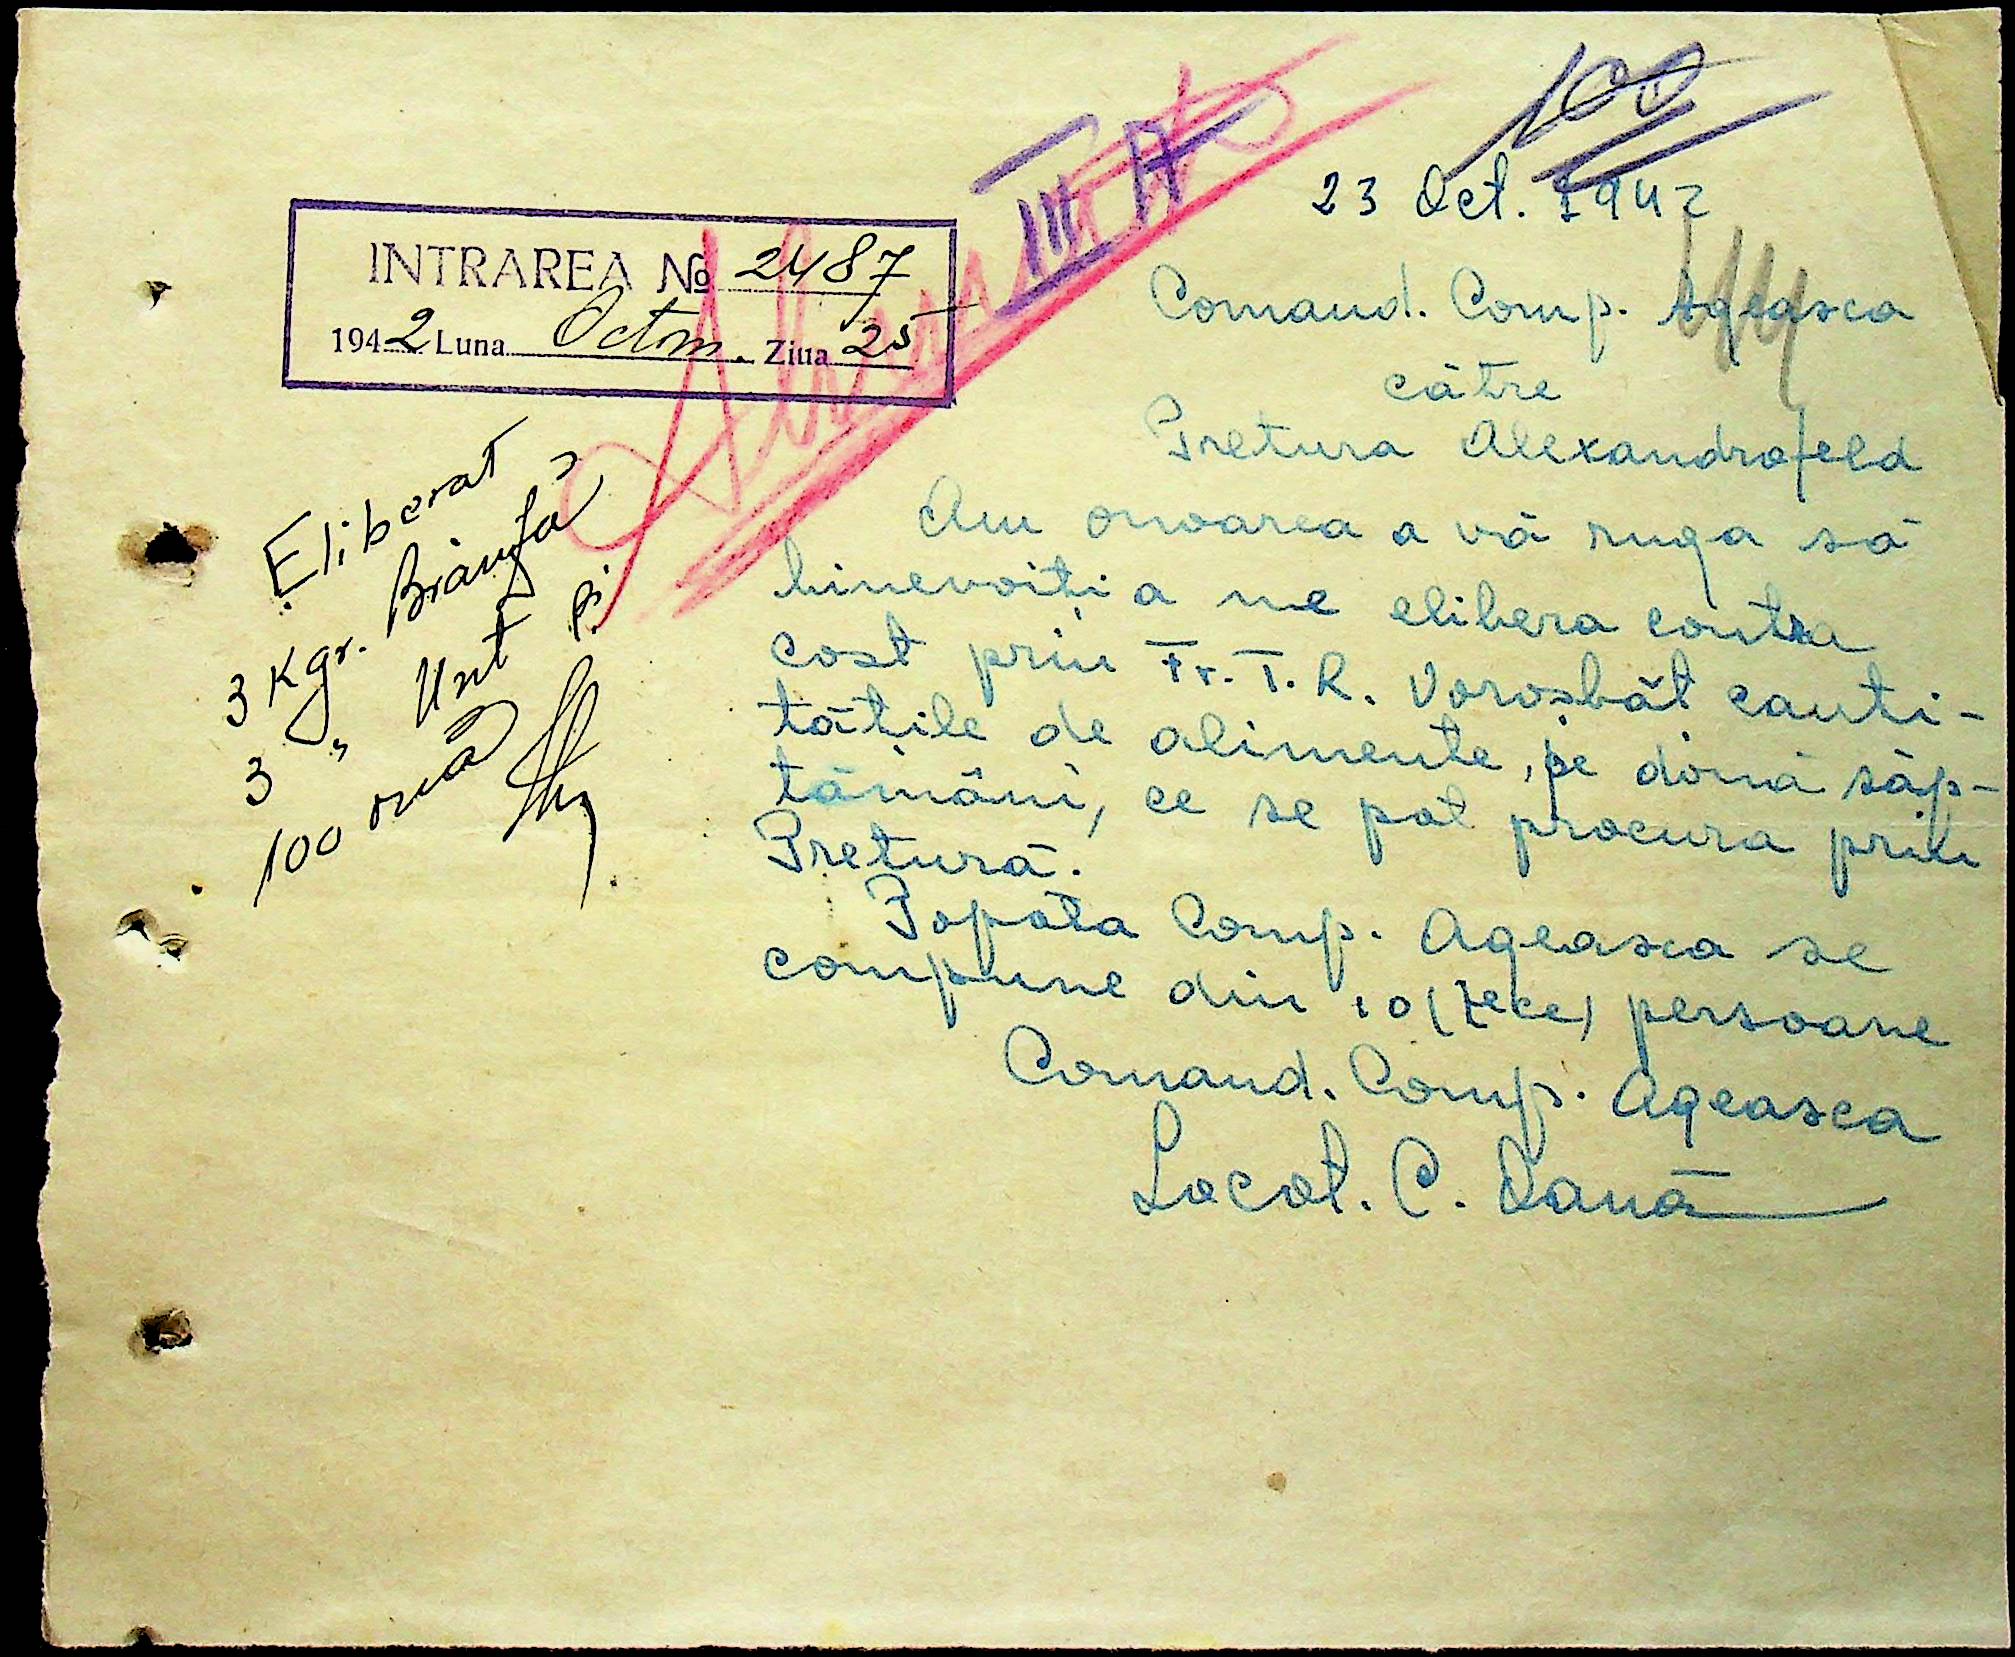 100
III A
23 Oct. 1942
INTRAREA No 2487
1942 Luna Octom. Ziua 25
Comand. Comp. Ageasca
către
Pretura Alexandrofeld
Am onoarea a vă ruga să
binevoiți a ne elibera contra
cost prin Fr. T. R. Vorosbăt canti-
tățile de alimente, pe două săp-
tămâni, ce se pot procura prin
Pretură.
Popota Comp. Ageasca se
compune din 10 (zece) persoane
Comand. Comp. Ageasca
Locot. C. Dană
Eliberat
3 Kgr. Brânză
3 " Unt și
100 ouă